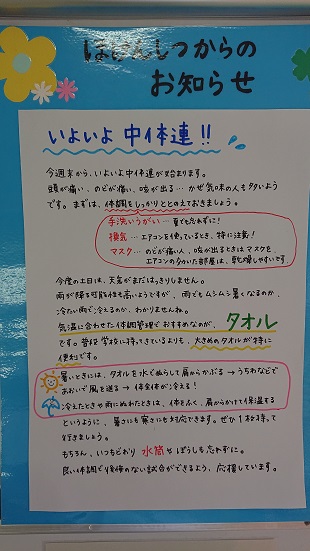 ほけんしつからの
お知らせ
いよいよ 中体連!!
今週末から、いよいよ中体連が始まります。
頭が痛い、のどが痛い、咳が出る… かぜ気味の人も多いよう
です。まずは、体調をしっかりととのえておきましょう。
手洗いうがい… 夏でも忘れずに!
換気… エアコンを使っているとき、特に注意!
マスク… のどが痛い人、咳が出るときはマスクを。
エアコンのきいた部屋は、乾燥しやすいです
今度の土日は、天気がまだはっきりしません。
雨が降る可能性も高いようですが、雨でもムシムシ暑くなるのか、
冷たい雨でこ冷えるのか、わかりませんね。
気温に合わせた体調管理でおすすめなのが、タオル
です。普段学校に持ってきているよりも、大きめのタオルが特に
便利です。
暑いときには、タオルを水でぬらして肩からかぶる → うちわなどで
あおいで風を送る → 体全体が冷える!
冷えたときや雨にぬれたときは、体をふく、肩からかけて保温する
というように、暑さにも寒さにも対応できます。ぜひ1枚持って
行きましょう。
もちろん、いつもどおり 水筒 やぼうしも忘れずに。
良い体調で後悔のない試合ができるよう、応援しています。